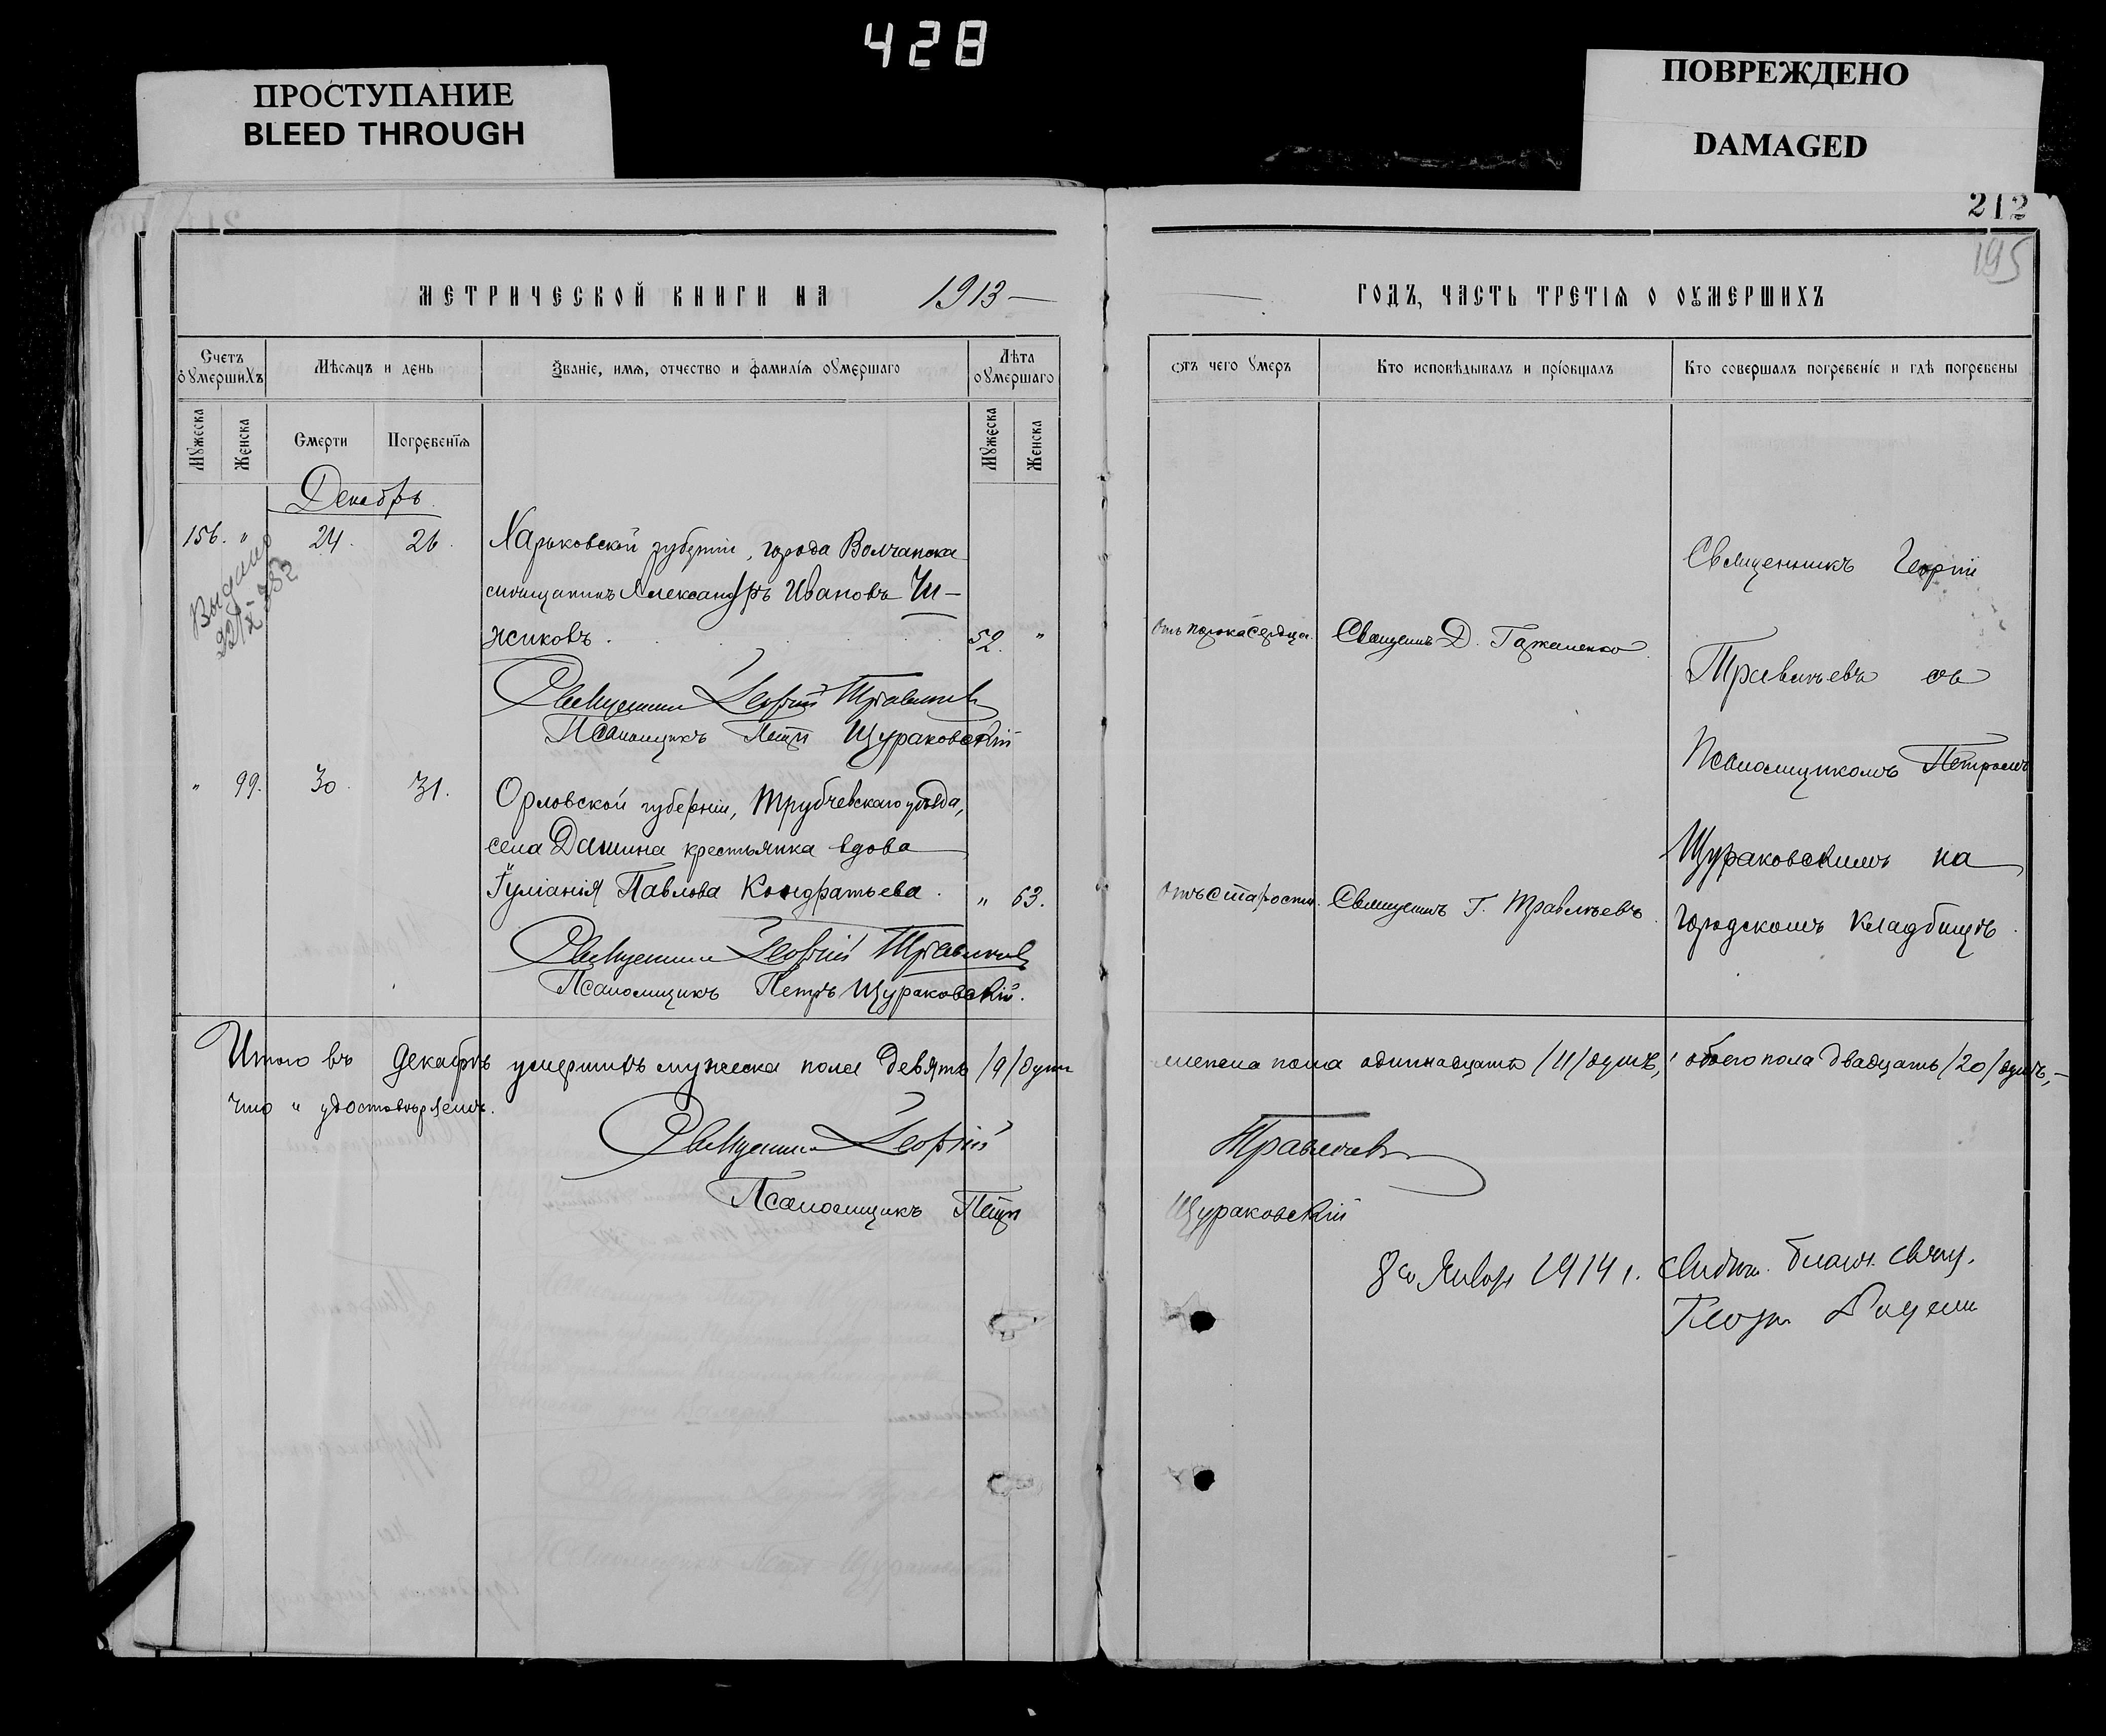 428
ПРОСТУПАНИЕ
BLEED THROUGH
ПОВРЕЖДЕНО
DAMAGED
212
195
МЕТРИЧЕСКОЙ КНИГИ НА 1913
ГОДЪ, ЧАСТЬ ТРЕТІЯ О ОУМЕРШИХЪ
Счетъ оумершихъ
Мѣсяцъ и день
Званіе, имя, отчество и фамилія оумершаго
Лѣта оумершаго
Отъ чего умеръ
Кто исповѣдывалъ и пріобщалъ
Кто совершалъ погребеніе и гдѣ погребены
Мужеска
Женска
Смерти
Погребенія
Мужеска
Женска
Декабрь.
156. " 24. 26. Харьковской губерніи, города Волчанска
мѣщанинъ Александръ Ивановъ Чи-
жиковъ. 52. " Отъ порока сердца. Священникъ Д.
Выдано
382
Священникъ Георгій Травлѣевъ
Псаломщикъ Петръ Щураковскій
" 99. 30. 31. Орловской губерніи, Трубчевскаго уѣзда,
села Дашина крестьянка вдова
Іуліанія Павлова Кондратьева. " 63. Отъ старости. Священникъ Г. Травлѣевъ.
Священникъ Георгій Травлѣевъ
Псаломщикъ Петръ Щураковскій.
Священникъ Георгій
Травлѣевъ съ
Псаломщикомъ Петромъ
Щураковскимъ на
городскомъ кладбищѣ.
Итого въ декабрѣ умершихъ мужеска пола девять /9/ душъ женска пола одиннадцать /11/ душъ, обоего пола двадцать /20/ душъ,-
что " удостовѣряемъ.
Священникъ Георгій Травлѣевъ
Псаломщикъ Петръ Щураковскій
8го Января 1914 г.